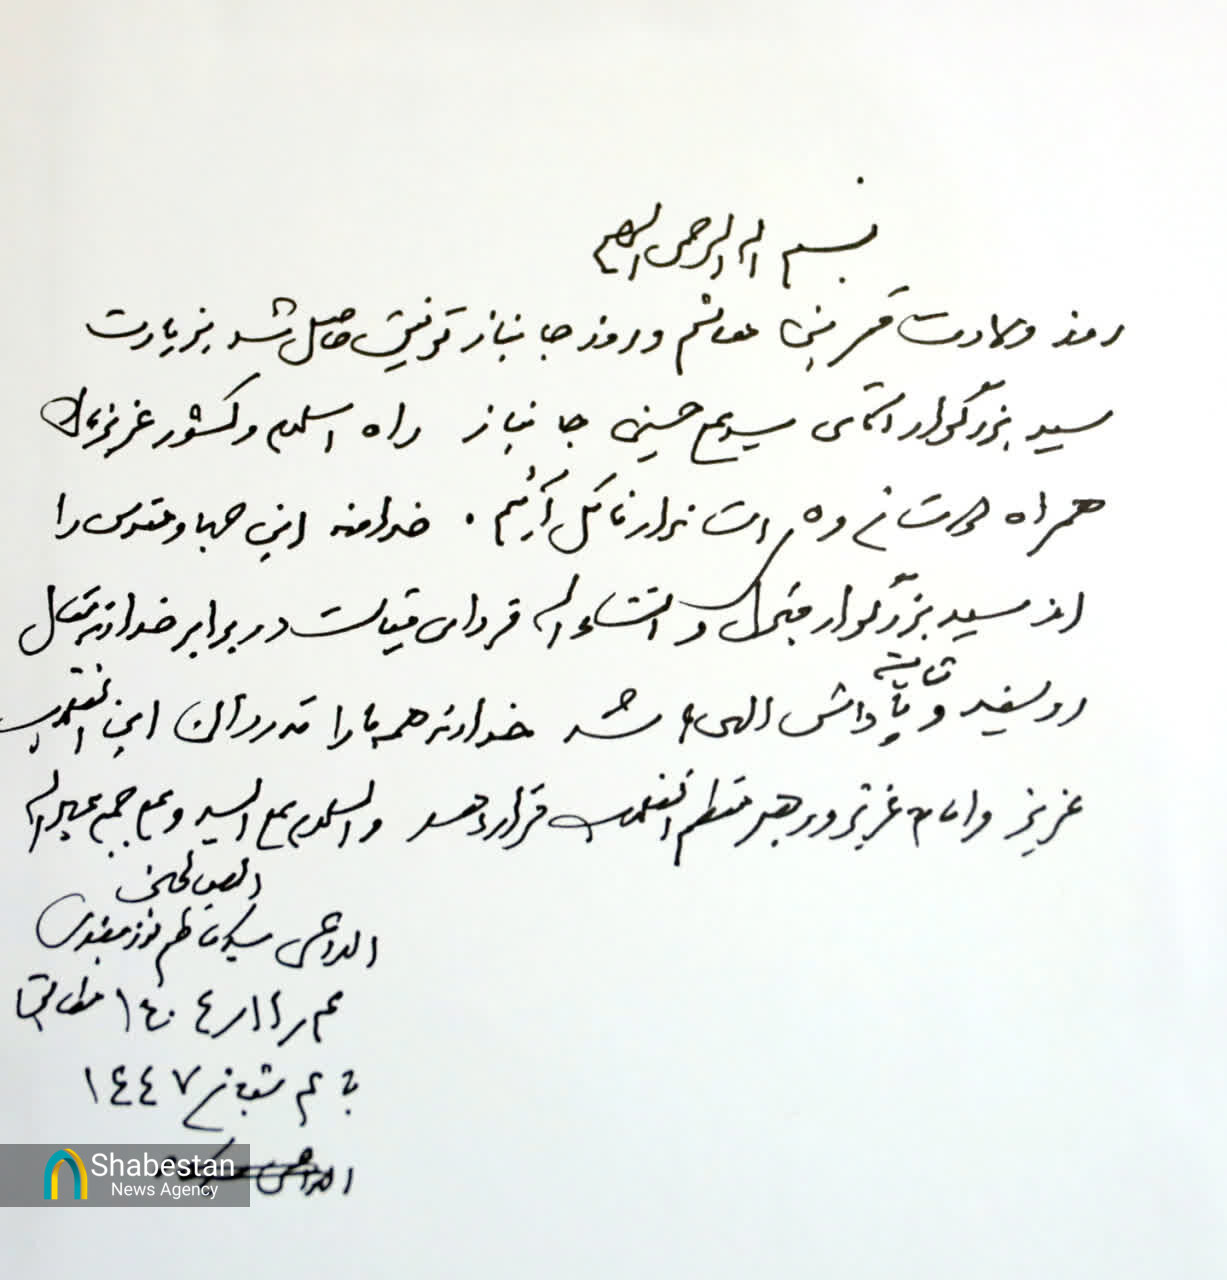 بسم الله الرحمن الرحیم
روز ولادت قمر بنی هاشم و روز جانباز توفیق حاصل شد بزیارت
سید بزرگوار آقای سید حسینی جانباز راه اسلام و کشور عزیزمان
همراه دوستان نائل آئیم . خداوند این جهاد مقدس را
از سید بزرگوار قبول و انشاء الله فردای قیامت در برابر خداوند متعال
روسفید و پاداش الهی شد خداوند همه ما را قدردان این انقلاب
عزیز و امام عزیز و رهبر معظم انقلاب قرار دهد والسلام علی السید و علی جمیع عباد الله
الصالحین
الداعی سید کاظم نورمفیدی
۴ر۱۱ر۱۴۰۴ مطابق
با ۴ شعبان ۱۴۴۷
الداعی
Shabestan
News Agency